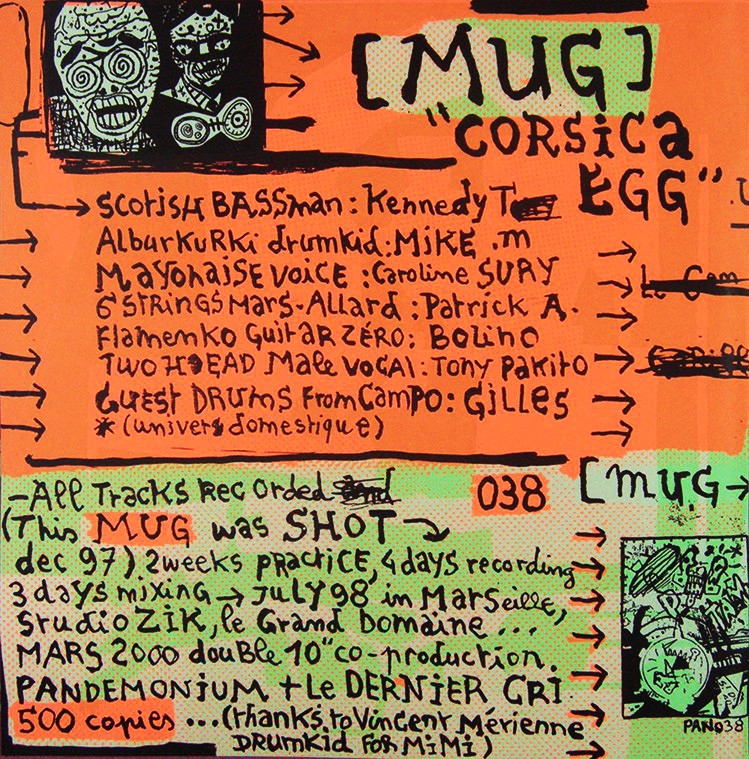 [MUG]
"CORSiCA
EGG"
SCOTiSH BASSman : Kennedy T
AlbuRKuRKi drumkid : MiKE .m
MAYONAiSE VOiCE : Caroline SURY
6 STRiNGS MARS-Allard : PATRicK A.
Flamenko GuitAR ZÉRO : Bolino
TWO HEAD Male VOCAl : TONY PAKiTO
GUEST DRUMS From CAMPO : GiLLES
* (univers domestique)
-All TRACKS RECORded
038
[MUG
(This MUG was SHOT
dec 97) 2weeks PRACTiCE, 4 days recording
3 days mixing → July 98 in MaRSeille,
STudio ZiK, le Grand Domaine ...
MARS 2000 douBle 10" co-production.
PANDEMONiUM + Le DERNiER CRi
500 copies ... (thanks to Vincent Mérienne
DRUMKid FOR MiMi)
PAN038